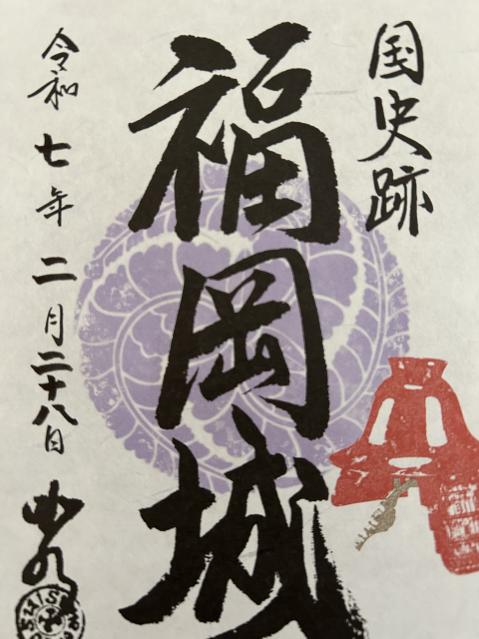 国史跡
福岡城
令和七年二月二十八日